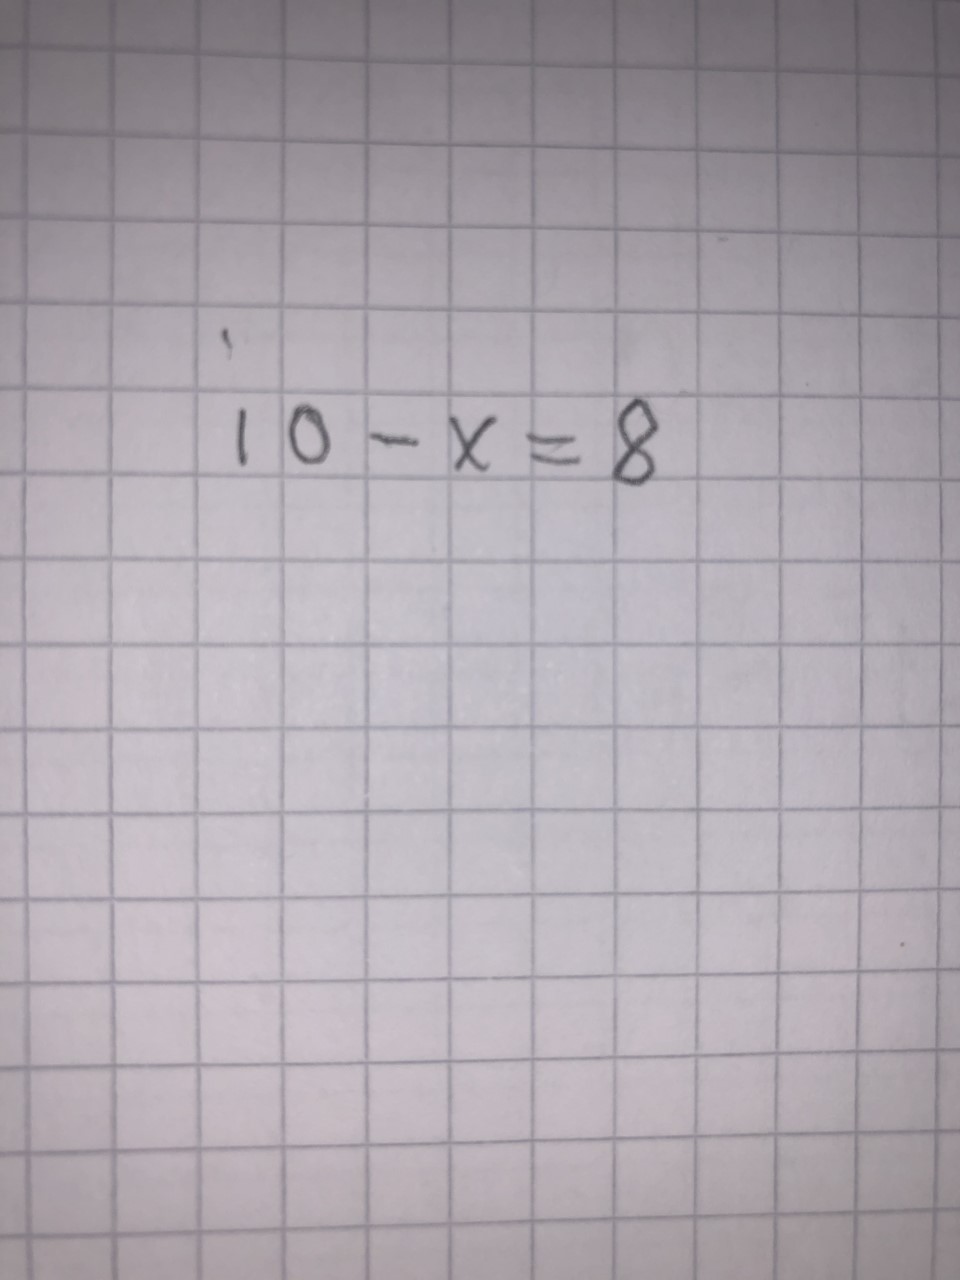 10 - x = 8